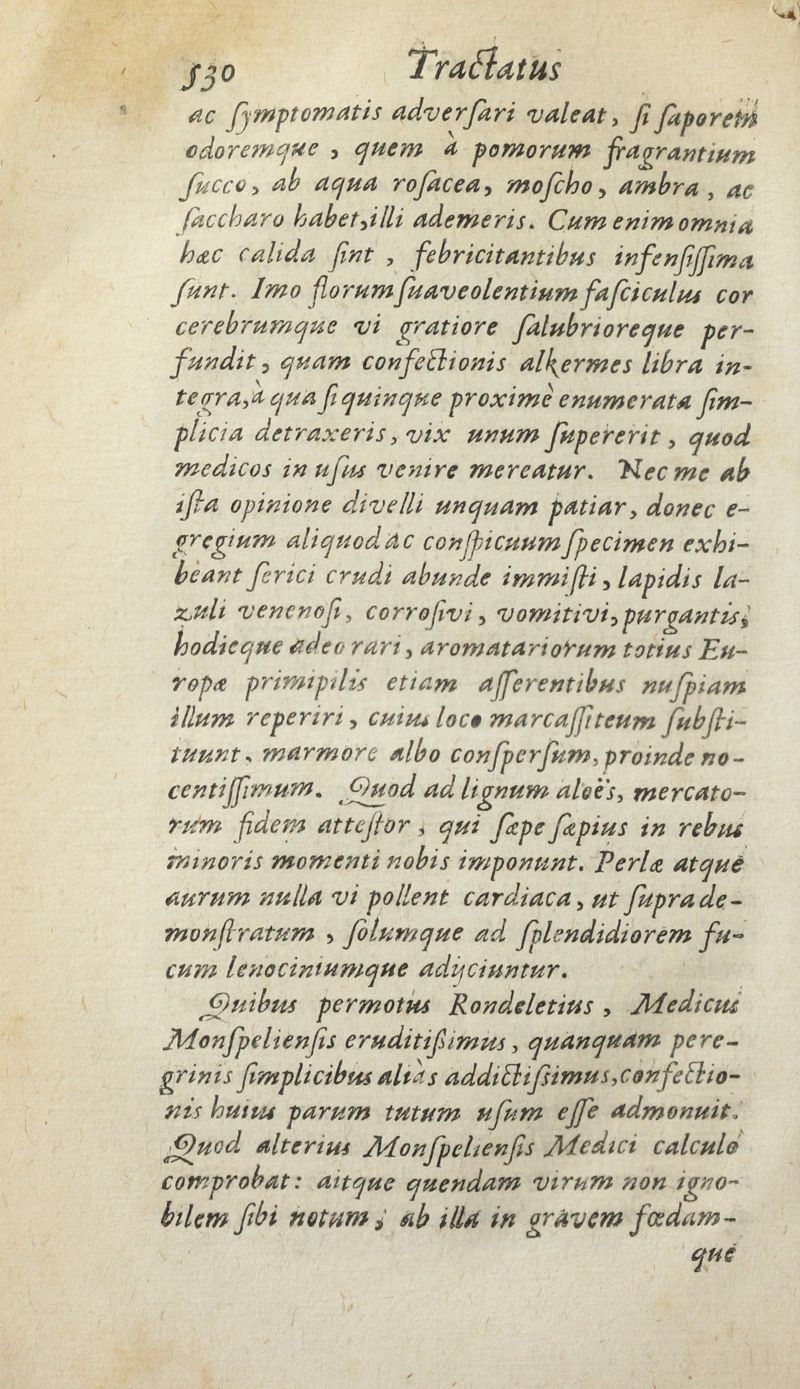 530 Tractatus
ac ſymptomatis adverſari valeat, ſi ſaporem
odoremque, quem à pomorum fragrantium
ſucco, ab aqua roſacea, moſcho, ambra, ac
ſaccharo habet, illi ademeris. Cum enim omnia
hæc calida ſint, febricitantibus infenſiſſima
ſunt. Imo florum ſuaveolentium faſciculus cor
cerebrumque vi gratiore ſalubrioreque per-
fundit, quam confectionis alkermes libra in-
tegra, à qua ſi quinque proximè enumerata ſim-
plicia detraxeris, vix unum ſupererit, quod
medicos in uſus venire mereatur. Nec me ab
iſta opinione divelli unquam patiar, donec e-
gregium aliquod ac conſpicuum ſpecimen exhi-
beant ſerici crudi abunde immiſti, lapidis la-
zuli venenoſi, corroſivi, vomitivi, purgantis,
hodieque adeo rari, aromatariorum totius Eu-
ropæ primipilis etiam aſſerentibus nuſpiam
illum reperiri, cuius loco marcaſſiteum ſubſti-
tuunt, marmore albo conſperſum, proinde no-
centiſſimum. Quod ad lignum aloës, mercato-
rum fidem atteſtor, qui ſæpe ſæpius in rebus
minoris momenti nobis imponunt. Perlæ atque
aurum nulla vi pollent cardiaca, ut ſupra de-
monſtratum, ſolumque ad ſplendidiorem fu-
cum lenociniumque adijciuntur.
Quibus permotus Rondeletius, Medicus
Monſpelienſis eruditiſsimus, quanquam pere-
grinis ſimplicibus aliàs addictiſsimus, confectio-
nis huius parum tutum uſum eſſe admonuit.
Quod alterius Monſpelienſis Medici calculo
comprobat: aitque quendam virum non igno-
bilem ſibi notum, ab illa in gravem fœdam-
que